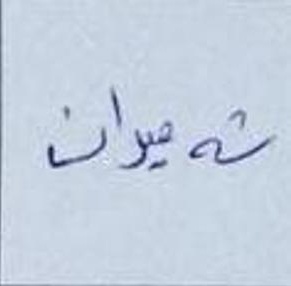 شه ميران